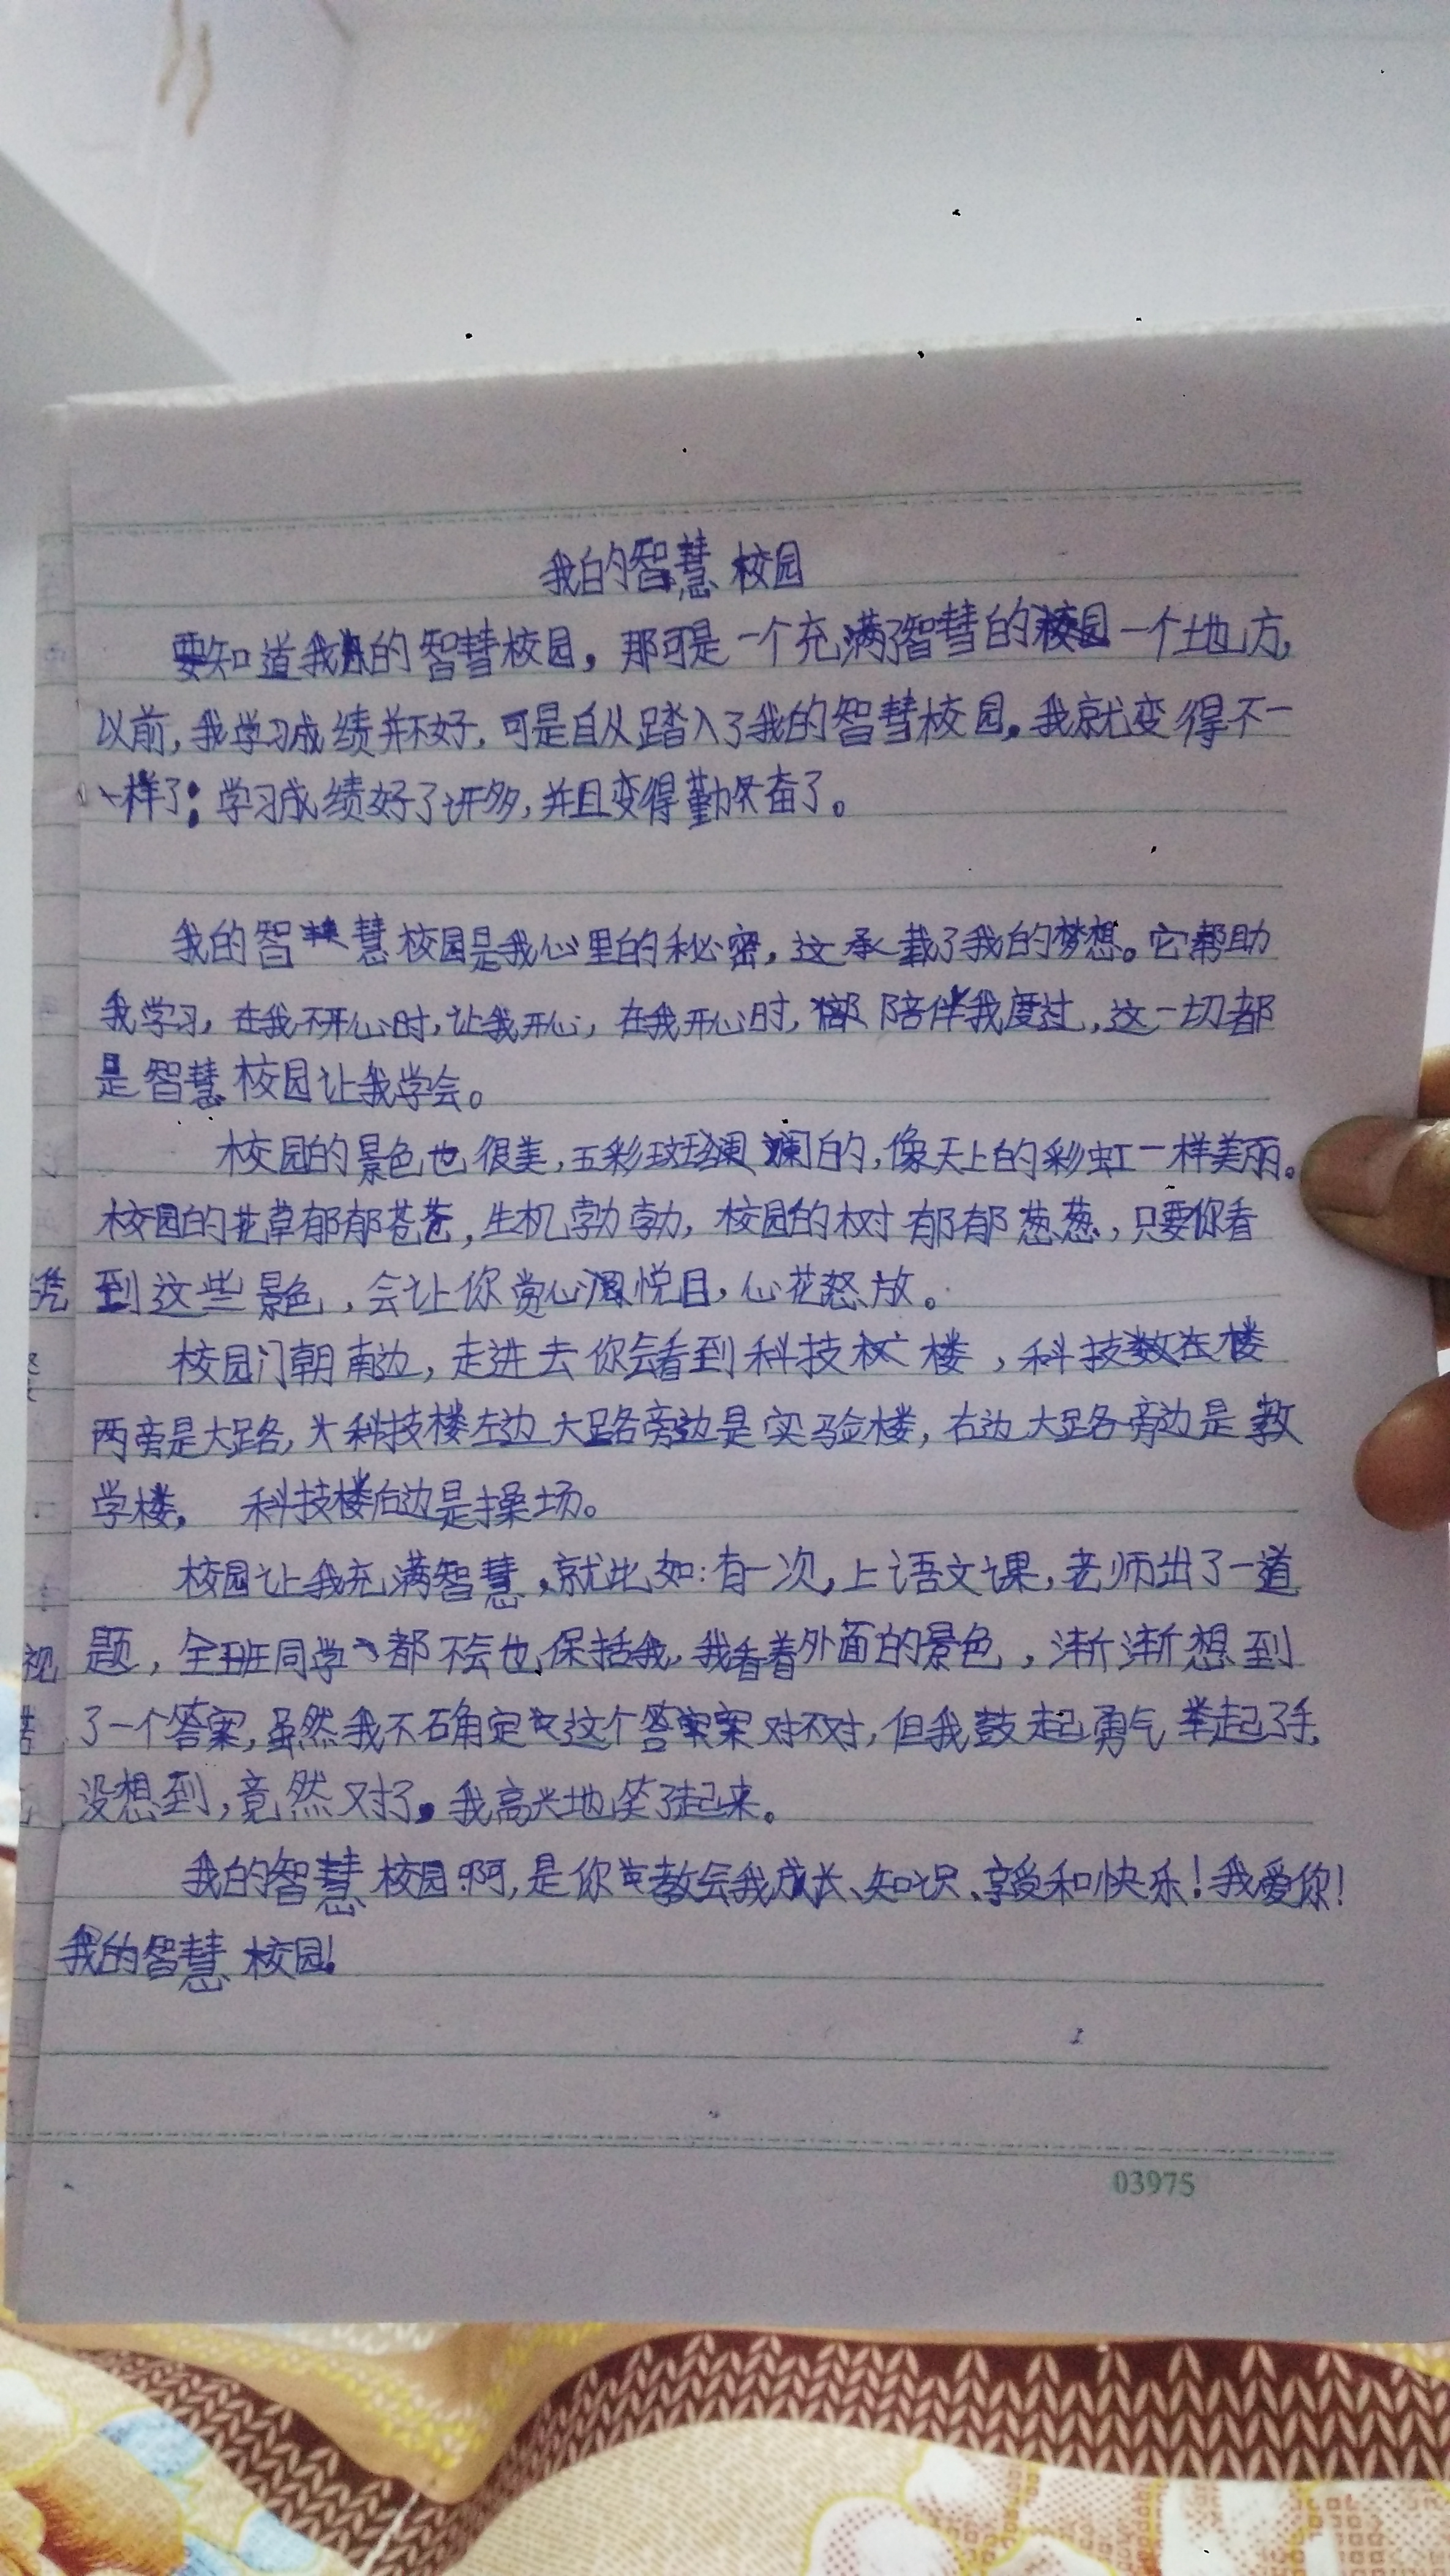 我的智慧校园
要知道我的智慧校园，那可是一个充满了智慧的一个地方，
以前，我学习成绩并不好，可是自从踏入了我的智慧校园。我就变得不一
一样了：学习成绩好了许多，并且变得勤奋了。
我的智慧校园是我心里的秘密，这承载了我的梦想。它帮助
我学习，在我不开心时，让我开心，在我开心时，陪伴我度过，这一切都
是智慧校园让我学会。
校园的景色也很美，五彩斑斓的，像天上的彩虹一样美丽。
校园的花草郁郁苍苍，生机勃勃，校园的树郁郁葱葱，只要你看
到这些景色，会让你赏心悦目，心花怒放。
校园门朝南边，走进去你会看到科技楼，科技楼
两旁是大路，科技楼左边大路旁边是实验楼，右边大路旁边是教
学楼，科技楼后边是操场。
校园让我充满智慧，就比如：有一次，上语文课，老师出了一道
题，全班同学都不会也保括我，我看着外面的景色，渐渐想到
了一个答案，虽然我不确定这个答案对不对，但我鼓起勇气举起了手，
没想到，竟然对了。我高兴地笑了起来。
我的智慧校园啊，是你教会我成长、知识、享受和快乐！我爱你！
我的智慧校园！
03975